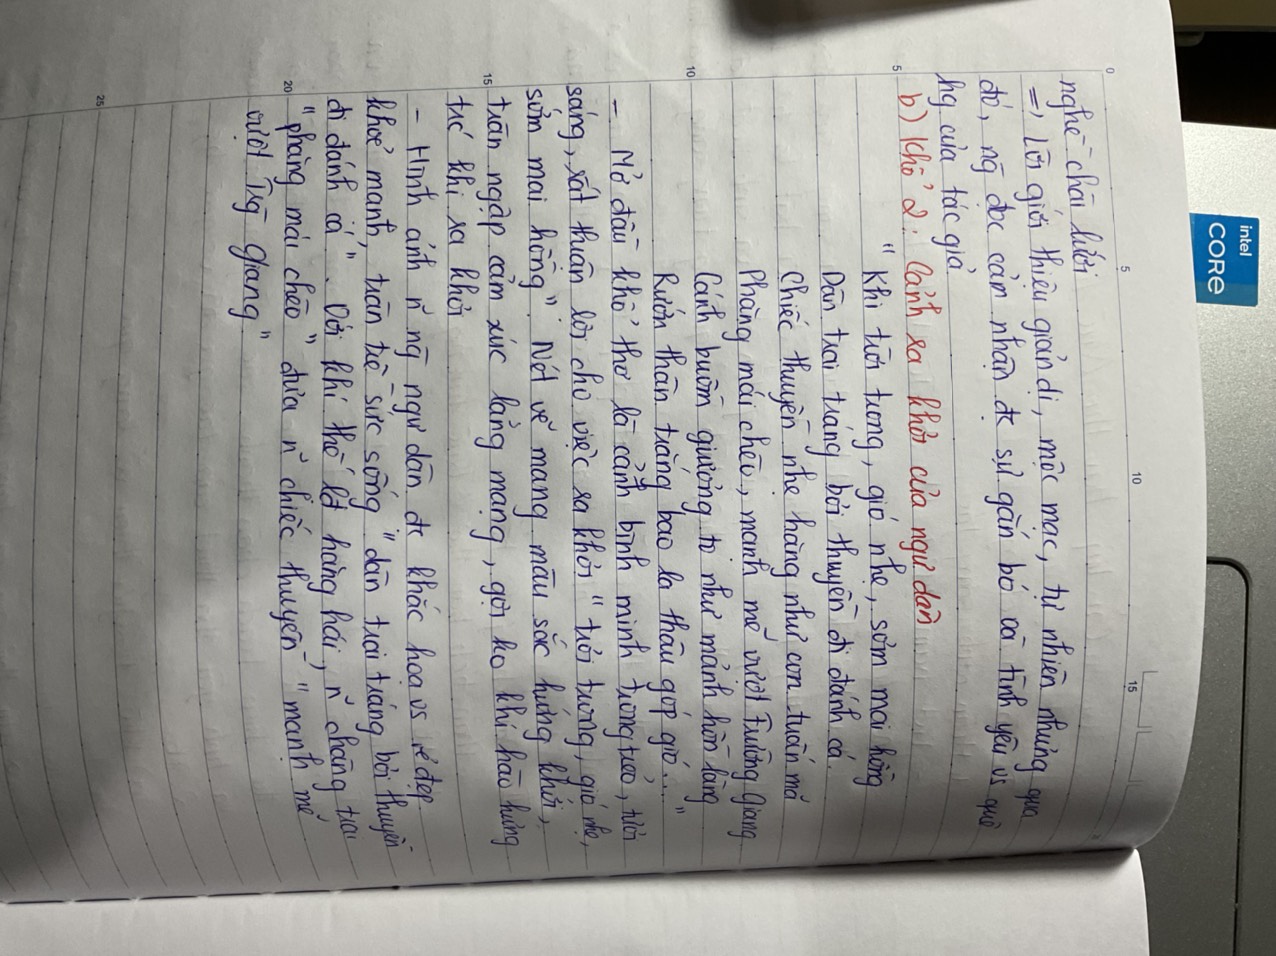 intel
CORe
0 5 10 15
nghề chài lưới
=> Lời giới thiệu giản dị, mộc mạc, tự nhiên nhưng qua
đó, ng̃ đọc cảm nhận đc sự gắn bó và tình yêu vs quê
hg của tác giả
b) Khổ 2: Cảnh ra khơi của ngư dân
5
"Khi trời trong, gió nhẹ, sớm mai hồng
Dân trai tráng bơi thuyền đi đánh cá
Chiếc thuyền nhẹ hăng như con tuấn mã
Phăng mái chèo, mạnh mẽ vượt Trường Giang
Cánh buồm giương to như mảnh hồn làng
10
Rướn thân trắng bao la thâu góp gió..."
- Mở đầu khổ thơ là cảnh bình minh trong trẻo, tươi
sáng, rất thuận lợi cho việc ra khơi "trời trong, gió nhẹ,
sớm mai hồng". Nét vẽ mang màu sắc hứng khởi,
tràn ngập cảm xúc lãng mạng, gợi ko khí hào hứng
15
trc khi ra khơi
- Hình ảnh n~ ng̃ ngư dân đc khắc hoạ vs vẻ đẹp
khoẻ mạnh, tràn trề sức sống "dân trai tráng bơi thuyền
đi đánh cá". Với khí thế lđ hăng hái, n~ chàng trai
"phăng mái chèo" đưa n~ chiếc thuyền "mạnh mẽ
20
vượt Trg̃ Giang"
25